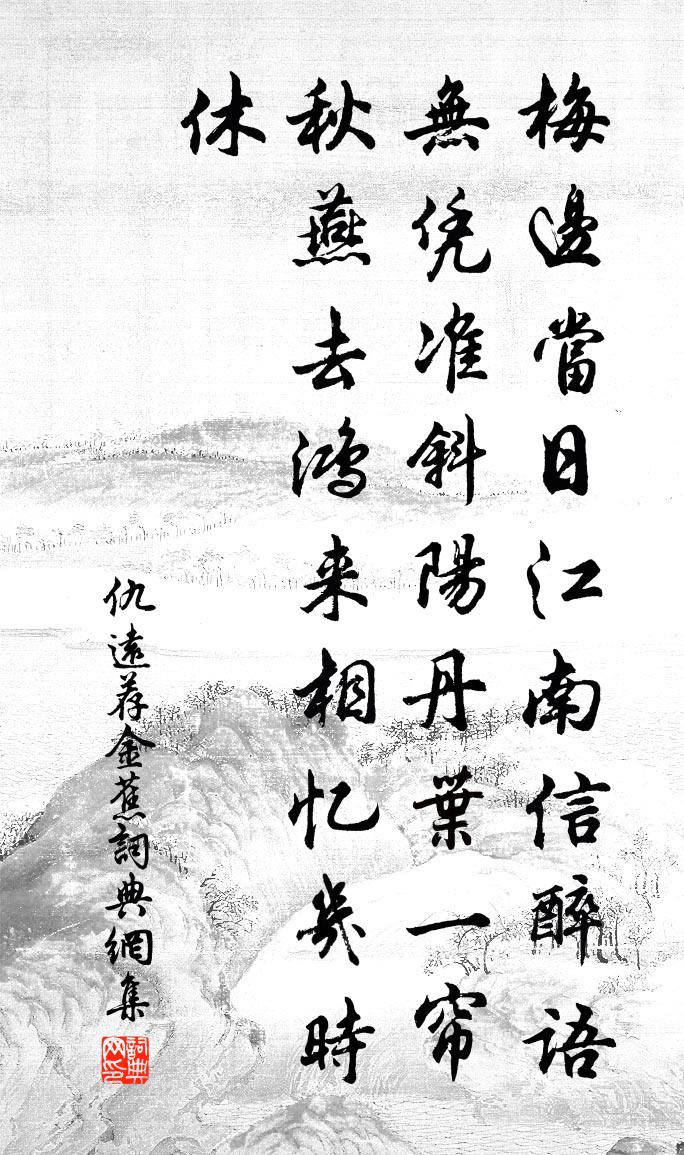 梅邊當日江南信醉語
無凭准斜陽丹葉一帘
秋燕去鴻来相忆幾時
休
仇遠荐金蕉詞典網集
詞典網印